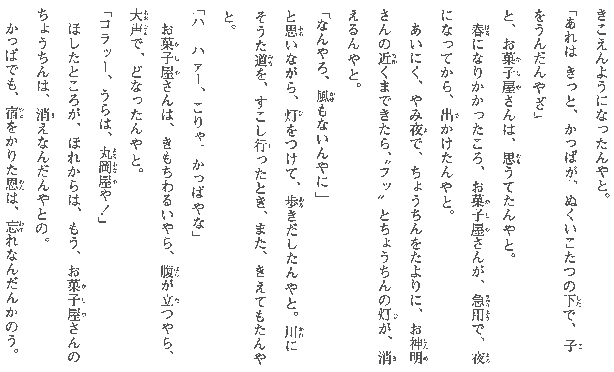 きこえんようになったんやと。
「あれは きっと、かっぱが、ぬくいこたつの下で、子
をうんだんやざ」
と、お菓子屋さんは、思うてたんやと。
春になりかかったころ、お菓子屋さんが、急用で、夜
になってから、出かけたんやと。
あいにく、やみ夜で、ちょうちんをたよりに、お神明
さんの近くまできたら、〝フッ〟とちょうちんの灯が、消
えるんやと。
「なんやろ、風もないんやに」
と思いながら、灯をつけて、歩きだしたんやと。川に
そうた道を、すこし行ったとき、また、きえてもたんや
と。
「ハ ハァー、こりゃ、かっぱやな」
お菓子屋さんは、きもちわるいやら、腹が立つやら、
大声で、どなったんやと。
「コラッー、うらは、丸岡屋や！」
ほしたところが、ほれからは、もう、お菓子屋さんの
ちょうちんは、消えなんだんやとの。
かっぱでも、宿をかりた恩は、忘れなんだんかのう。